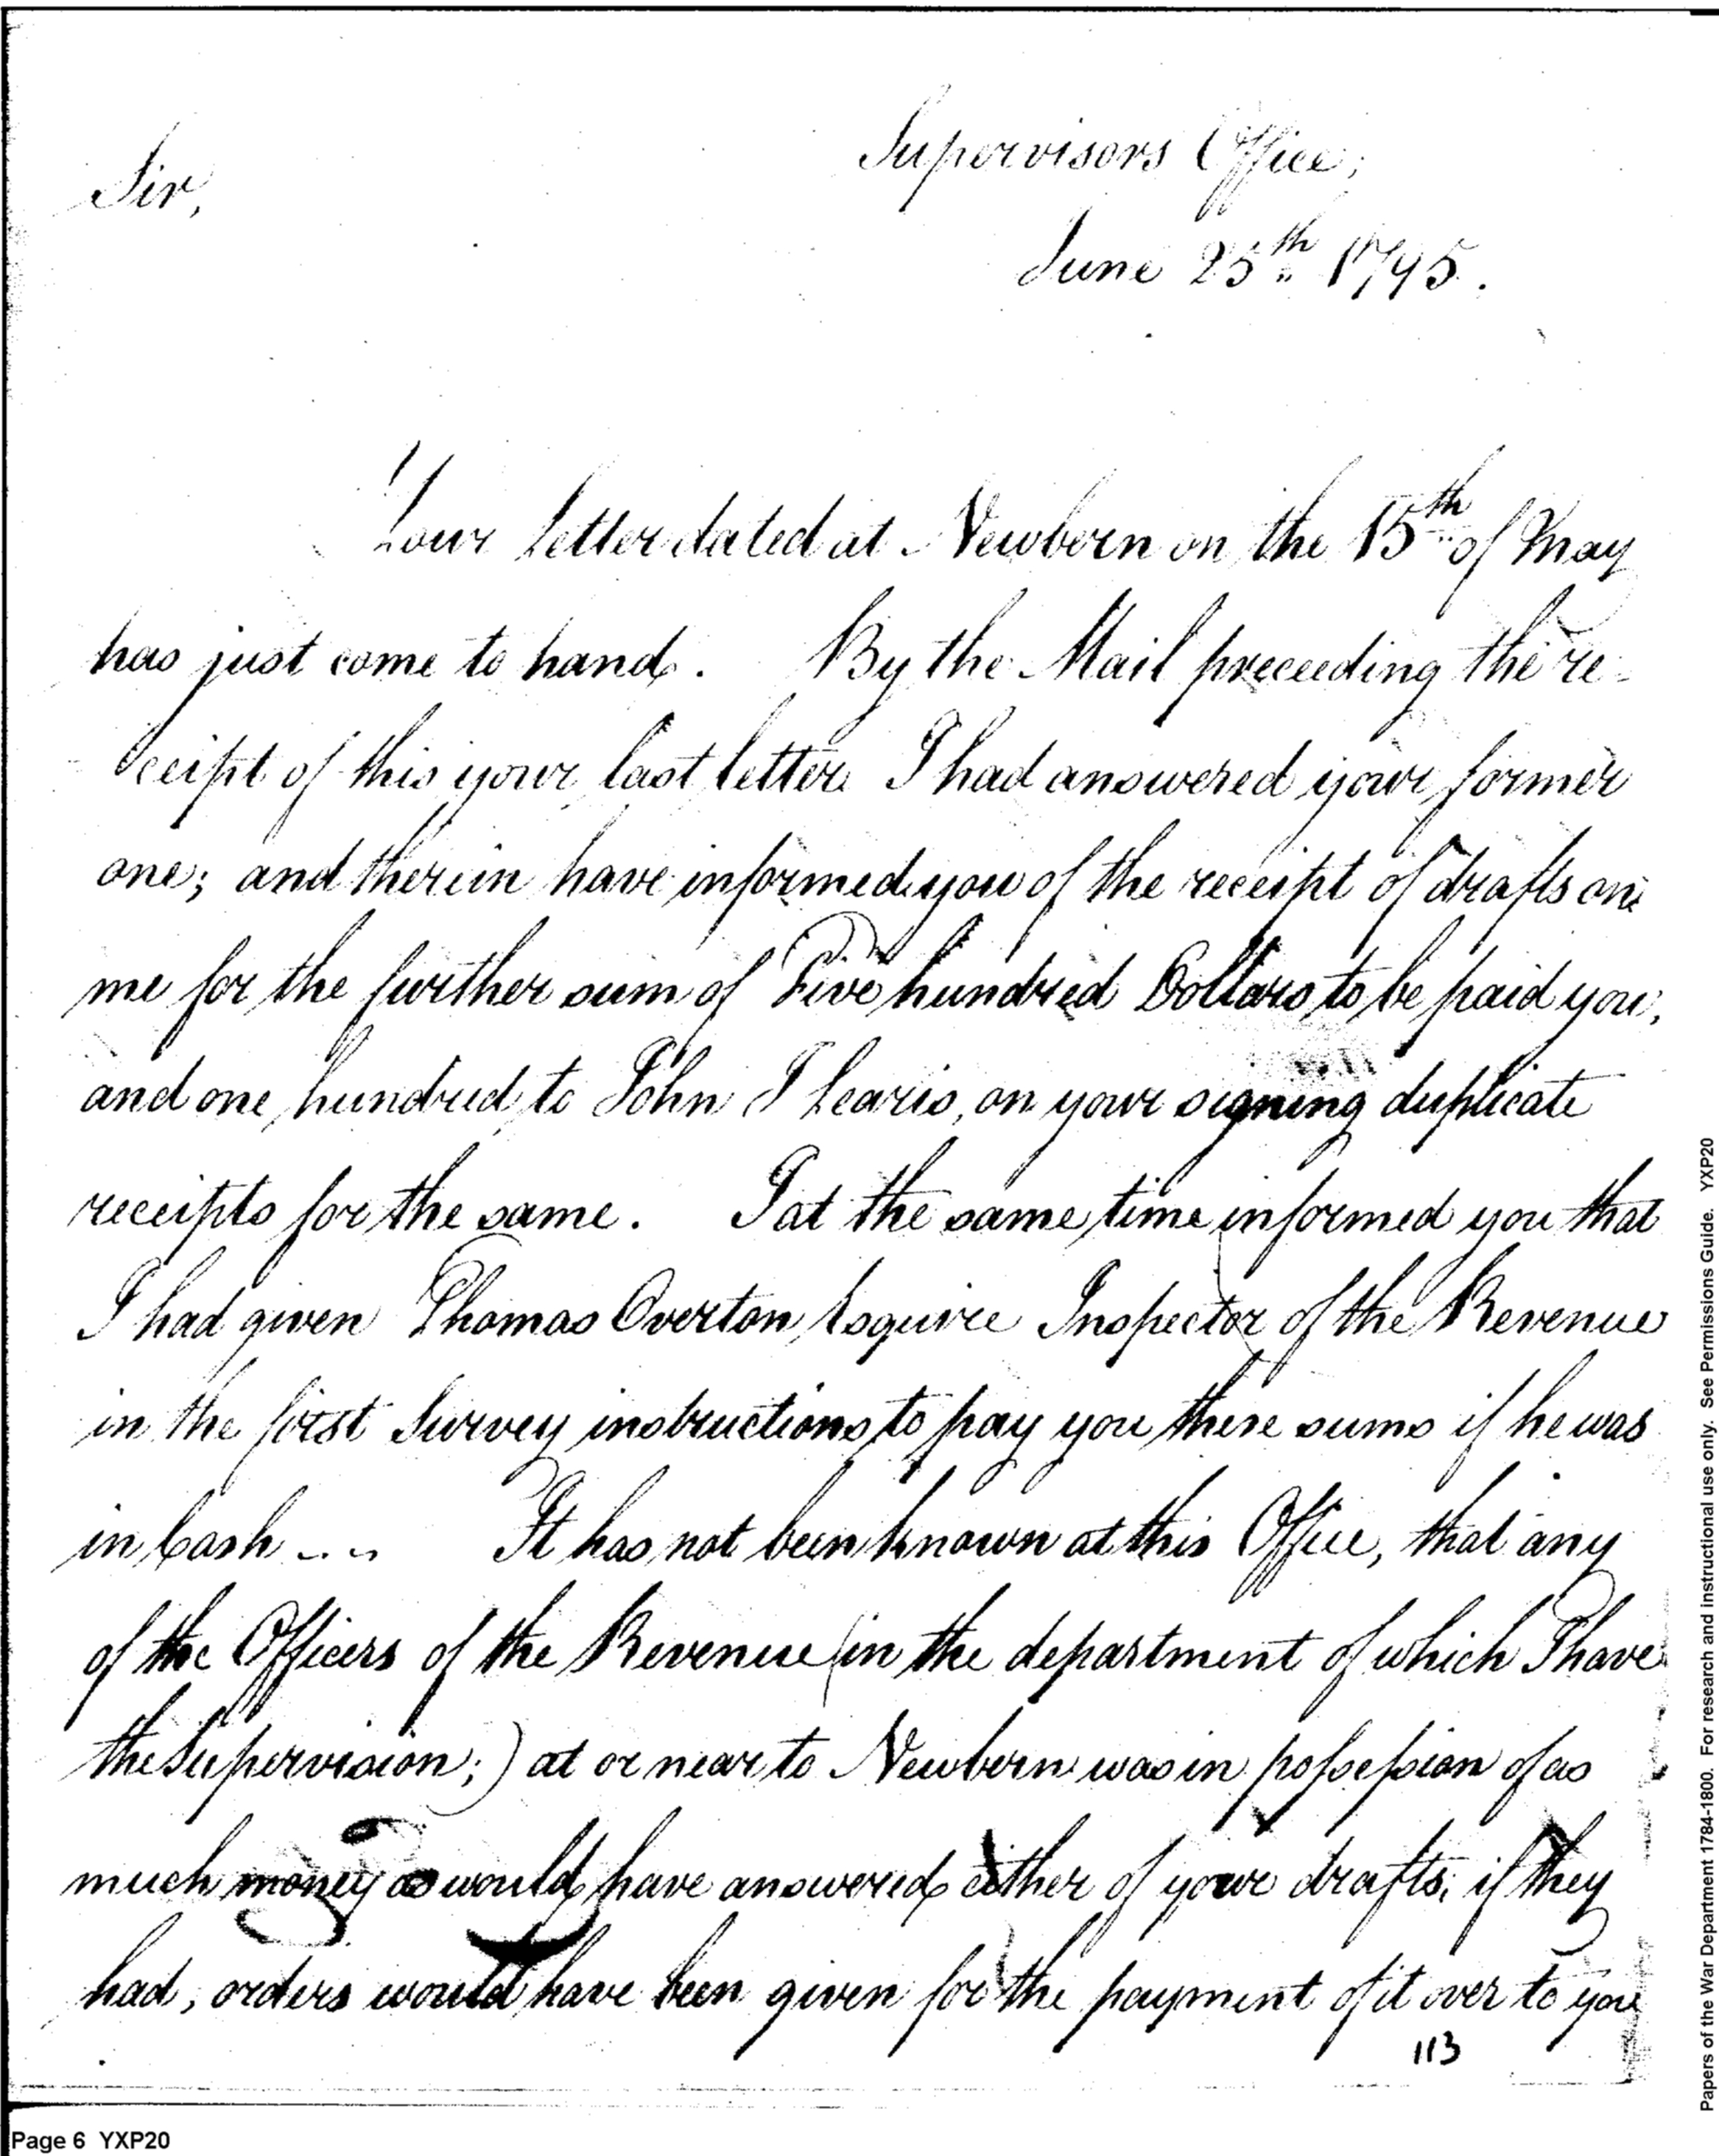 Supervisors Office,
Sir,
June 25th 1795.
Your letter dated at Newbern on the 15th of May
has just come to hand. By the Mail preceeding the re-
ceipt of this your last letter I had answered your former
one; and therein have informed you of the receipt of drafts on
me for the further sum of Five hundred Dollars to be paid you,
and one hundred to John on your signing duplicate
receipts for the same. I at the same time informed you that
I had given Thomas Overton Esquire Inspector of the Revenue
in the first Survey instructions to pay you these sums if he was
in Cash - - - It has not been known at this Office, that any
of the Officers of the Revenue (in the department of which I have
the Supervision;) at or near to Newbern was in possession of as
much money as would have answered either of your drafts; if they
had, orders would have been given for the payment of it over to you
113
Page 6 YXP20
Papers of the War Department 1784-1800. For research and instructional use only. See Permissions Guide. YXP20